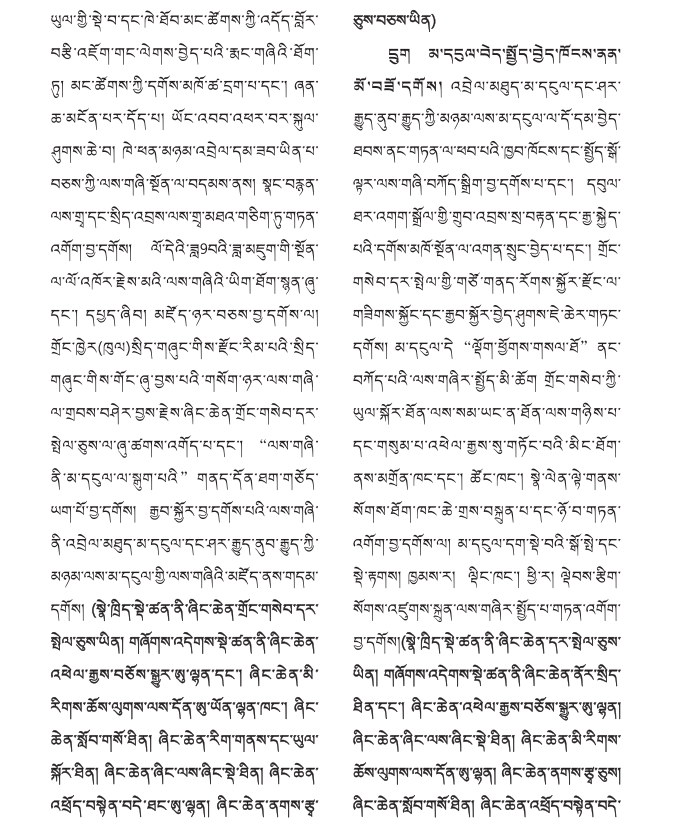 ཡུལ་གྱི་སྡེ་བ་དང་ཁེ་ཐོབ་མང་ཚོགས་ཀྱི་འདོད་བློར་
བརྩི་འཇོག་གང་ལེགས་བྱེད་པའི་རྨང་གཞིའི་ཐོག་
ཏུ། མང་ཚོགས་ཀྱི་དགོས་མཁོ་ཚ་དྲག་པ་དང་། ཞན་
ཆ་མངོན་པར་དོད་པ། ཡོང་འབབ་འཕར་བར་སྐུལ་
ཤུགས་ཆེ་བ། ཁེ་ཕན་མཉམ་འབྲེལ་དམ་ཟབ་ཡིན་པ་
བཅས་ཀྱི་ལས་གཞི་སྔོན་ལ་བདམས་ནས། སྣང་བརྙན་
ལས་གྲྭ་དང་སྲིད་འབྲས་ལས་གྲྭ་མཐའ་གཅིག་ཏུ་གཏན་
འགོག་བྱ་དགོས། ལོ་དེའི་ཟླ9བའི་ཟླ་མཇུག་གི་སྔོན་
ལ་ལོ་འཁོར་རྗེས་མའི་ལས་གཞིའི་ཡིག་ཐོག་སྙན་ཞུ་
དང་། དཔྱད་ཞིབ། མཛོད་ཉར་བཅས་བྱ་དགོས་ལ།
གྲོང་ཁྱེར(ཁུལ)སྲིད་གཞུང་གིས་རྫོང་རིམ་པའི་སྲིད་
གཞུང་གིས་གོང་ཞུ་བྱས་པའི་གསོག་ཉར་ལས་གཞི་
ལ་གྲབས་བཤེར་བྱས་རྗེས་ཞིང་ཆེན་གྲོང་གསེབ་དར་
སྤེལ་ཅུས་ལ་ཞུ་ཚགས་འགོད་པ་དང་། “ལས་གཞི་
ནི་མ་དངུལ་ལ་སྒུག་པའི” གནད་དོན་ཐག་གཅོད་
ཡག་པོ་བྱ་དགོས། རྒྱབ་སྐྱོར་བྱ་དགོས་པའི་ལས་གཞི་
ནི་འབྲེལ་མཐུད་མ་དངུལ་དང་ཤར་རྒྱུད་ནུབ་རྒྱུད་ཀྱི་
མཉམ་ལས་མ་དངུལ་གྱི་ལས་གཞིའི་མཛོད་ནས་གདམ་
དགོས། (སྣེ་ཁྲིད་སྡེ་ཚན་ནི་ཞིང་ཆེན་གྲོང་གསེབ་དར་
སྤེལ་ཅུས་ཡིན། གཞོགས་འདེགས་སྡེ་ཚན་ནི་ཞིང་ཆེན་
འཕེལ་རྒྱས་བཅོས་སྒྱུར་ཨུ་ལྷན་དང་། ཞིང་ཆེན་མི་
རིགས་ཆོས་ལུགས་ལས་དོན་ཨུ་ཡོན་ལྷན་ཁང་། ཞིང་
ཆེན་སློབ་གསོ་ཐིན། ཞིང་ཆེན་རིག་གནས་དང་ཡུལ་
སྐོར་ཐིན། ཞིང་ཆེན་ཞིང་ལས་ཞིང་སྡེ་ཐིན། ཞིང་ཆེན་
འཕྲོད་བསྟེན་བདེ་ཐང་ཨུ་ལྷན། ཞིང་ཆེན་ནགས་རྩྭ་
ཅུས་བཅས་ཡིན)
དྲུག མ་དངུལ་བེད་སྤྱོད་བྱེད་ཁོངས་ནན་
མོ་བཟོ་དགོས། འབྲེལ་མཐུད་མ་དངུལ་དང་ཤར་
རྒྱུད་ནུབ་རྒྱུད་ཀྱི་མཉམ་ལས་མ་དངུལ་ལ་དོ་དམ་བྱེད་
ཐབས་ནང་གཏན་ལ་ཕབ་པའི་ཁྱབ་ཁོངས་དང་སྤྱོད་སྒོ་
ལྟར་ལས་གཞི་བཀོད་སྒྲིག་བྱ་དགོས་པ་དང་། དབུལ་
ཐར་འགག་སྒྲོལ་གྱི་གྲུབ་འབྲས་སྲ་བརྟན་དང་རྒྱ་སྐྱེད་
པའི་དགོས་མཁོ་སྔོན་ལ་འགན་སྲུང་བྱེད་པ་དང་། གྲོང་
གསེབ་དར་སྤེལ་གྱི་གཙོ་གནད་རོགས་སྐྱོར་རྫོང་ལ་
གཟིགས་སྐྱོང་དང་རྒྱབ་སྐྱོར་བྱེད་ཤུགས་ཇེ་ཆེར་གཏང་
དགོས། མ་དངུལ་དེ “ལྡོག་ཕྱོགས་གསལ་ཐོ” ནང་
བཀོད་པའི་ལས་གཞིར་སྤྱོད་མི་ཆོག གྲོང་གསེབ་ཀྱི་
ཡུལ་སྐོར་ཐོན་ལས་སམ་ཡང་ན་ཐོན་ལས་གཉིས་པ་
དང་གསུམ་པ་འཕེལ་རྒྱས་སུ་གཏོང་བའི་མིང་ཐོག་
ནས་མགྲོན་ཁང་དང་། ཚོང་ཁང་། སྣེ་ལེན་ལྟེ་གནས་
སོགས་ཐོག་ཁང་ཆེ་གྲས་བསྐྲུན་པ་དང་ཉོ་བ་གཏན་
འགོག་བྱ་དགོས་ལ། མ་དངུལ་དག་སྡེ་བའི་སྒོ་སྤེ་དང་
སྡེ་རྟགས། ཁྱམས་ར། ལྡིང་ཁང་། ཕྱི་ར། ལྡེབས་རྩིག་
སོགས་འཛུགས་སྐྲུན་ལས་གཞིར་སྤྱོད་པ་གཏན་འགོག་
བྱ་དགོས།(སྣེ་ཁྲིད་སྡེ་ཚན་ནི་ཞིང་ཆེན་དར་སྤེལ་ཅུས་
ཡིན། གཞོགས་འདེགས་སྡེ་ཚན་ནི་ཞིང་ཆེན་ནོར་སྲིད་
ཐིན་དང་། ཞིང་ཆེན་འཕེལ་རྒྱས་བཅོས་སྒྱུར་ཨུ་ལྷན།
ཞིང་ཆེན་ཞིང་ལས་ཞིང་སྡེ་ཐིན། ཞིང་ཆེན་མི་རིགས་
ཆོས་ལུགས་ལས་དོན་ཨུ་ལྷན། ཞིང་ཆེན་ནགས་རྩྭ་ཅུས།
ཞིང་ཆེན་སློབ་གསོ་ཐིན། ཞིང་ཆེན་འཕྲོད་བསྟེན་བདེ་